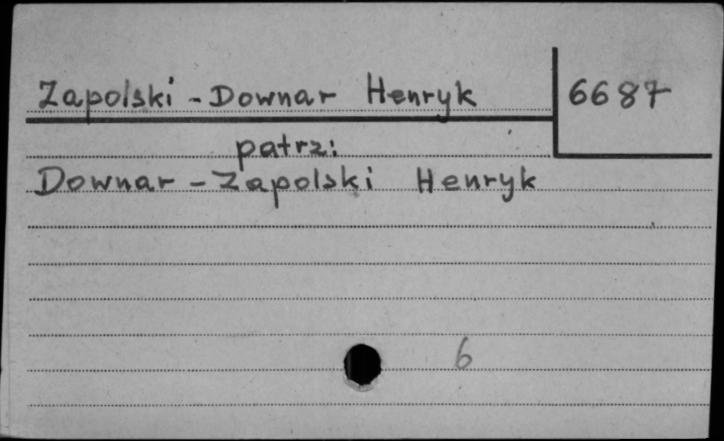 Zapolski - Downar Henryk 6687
patrz:
Downar - Zapolski Henryk
6